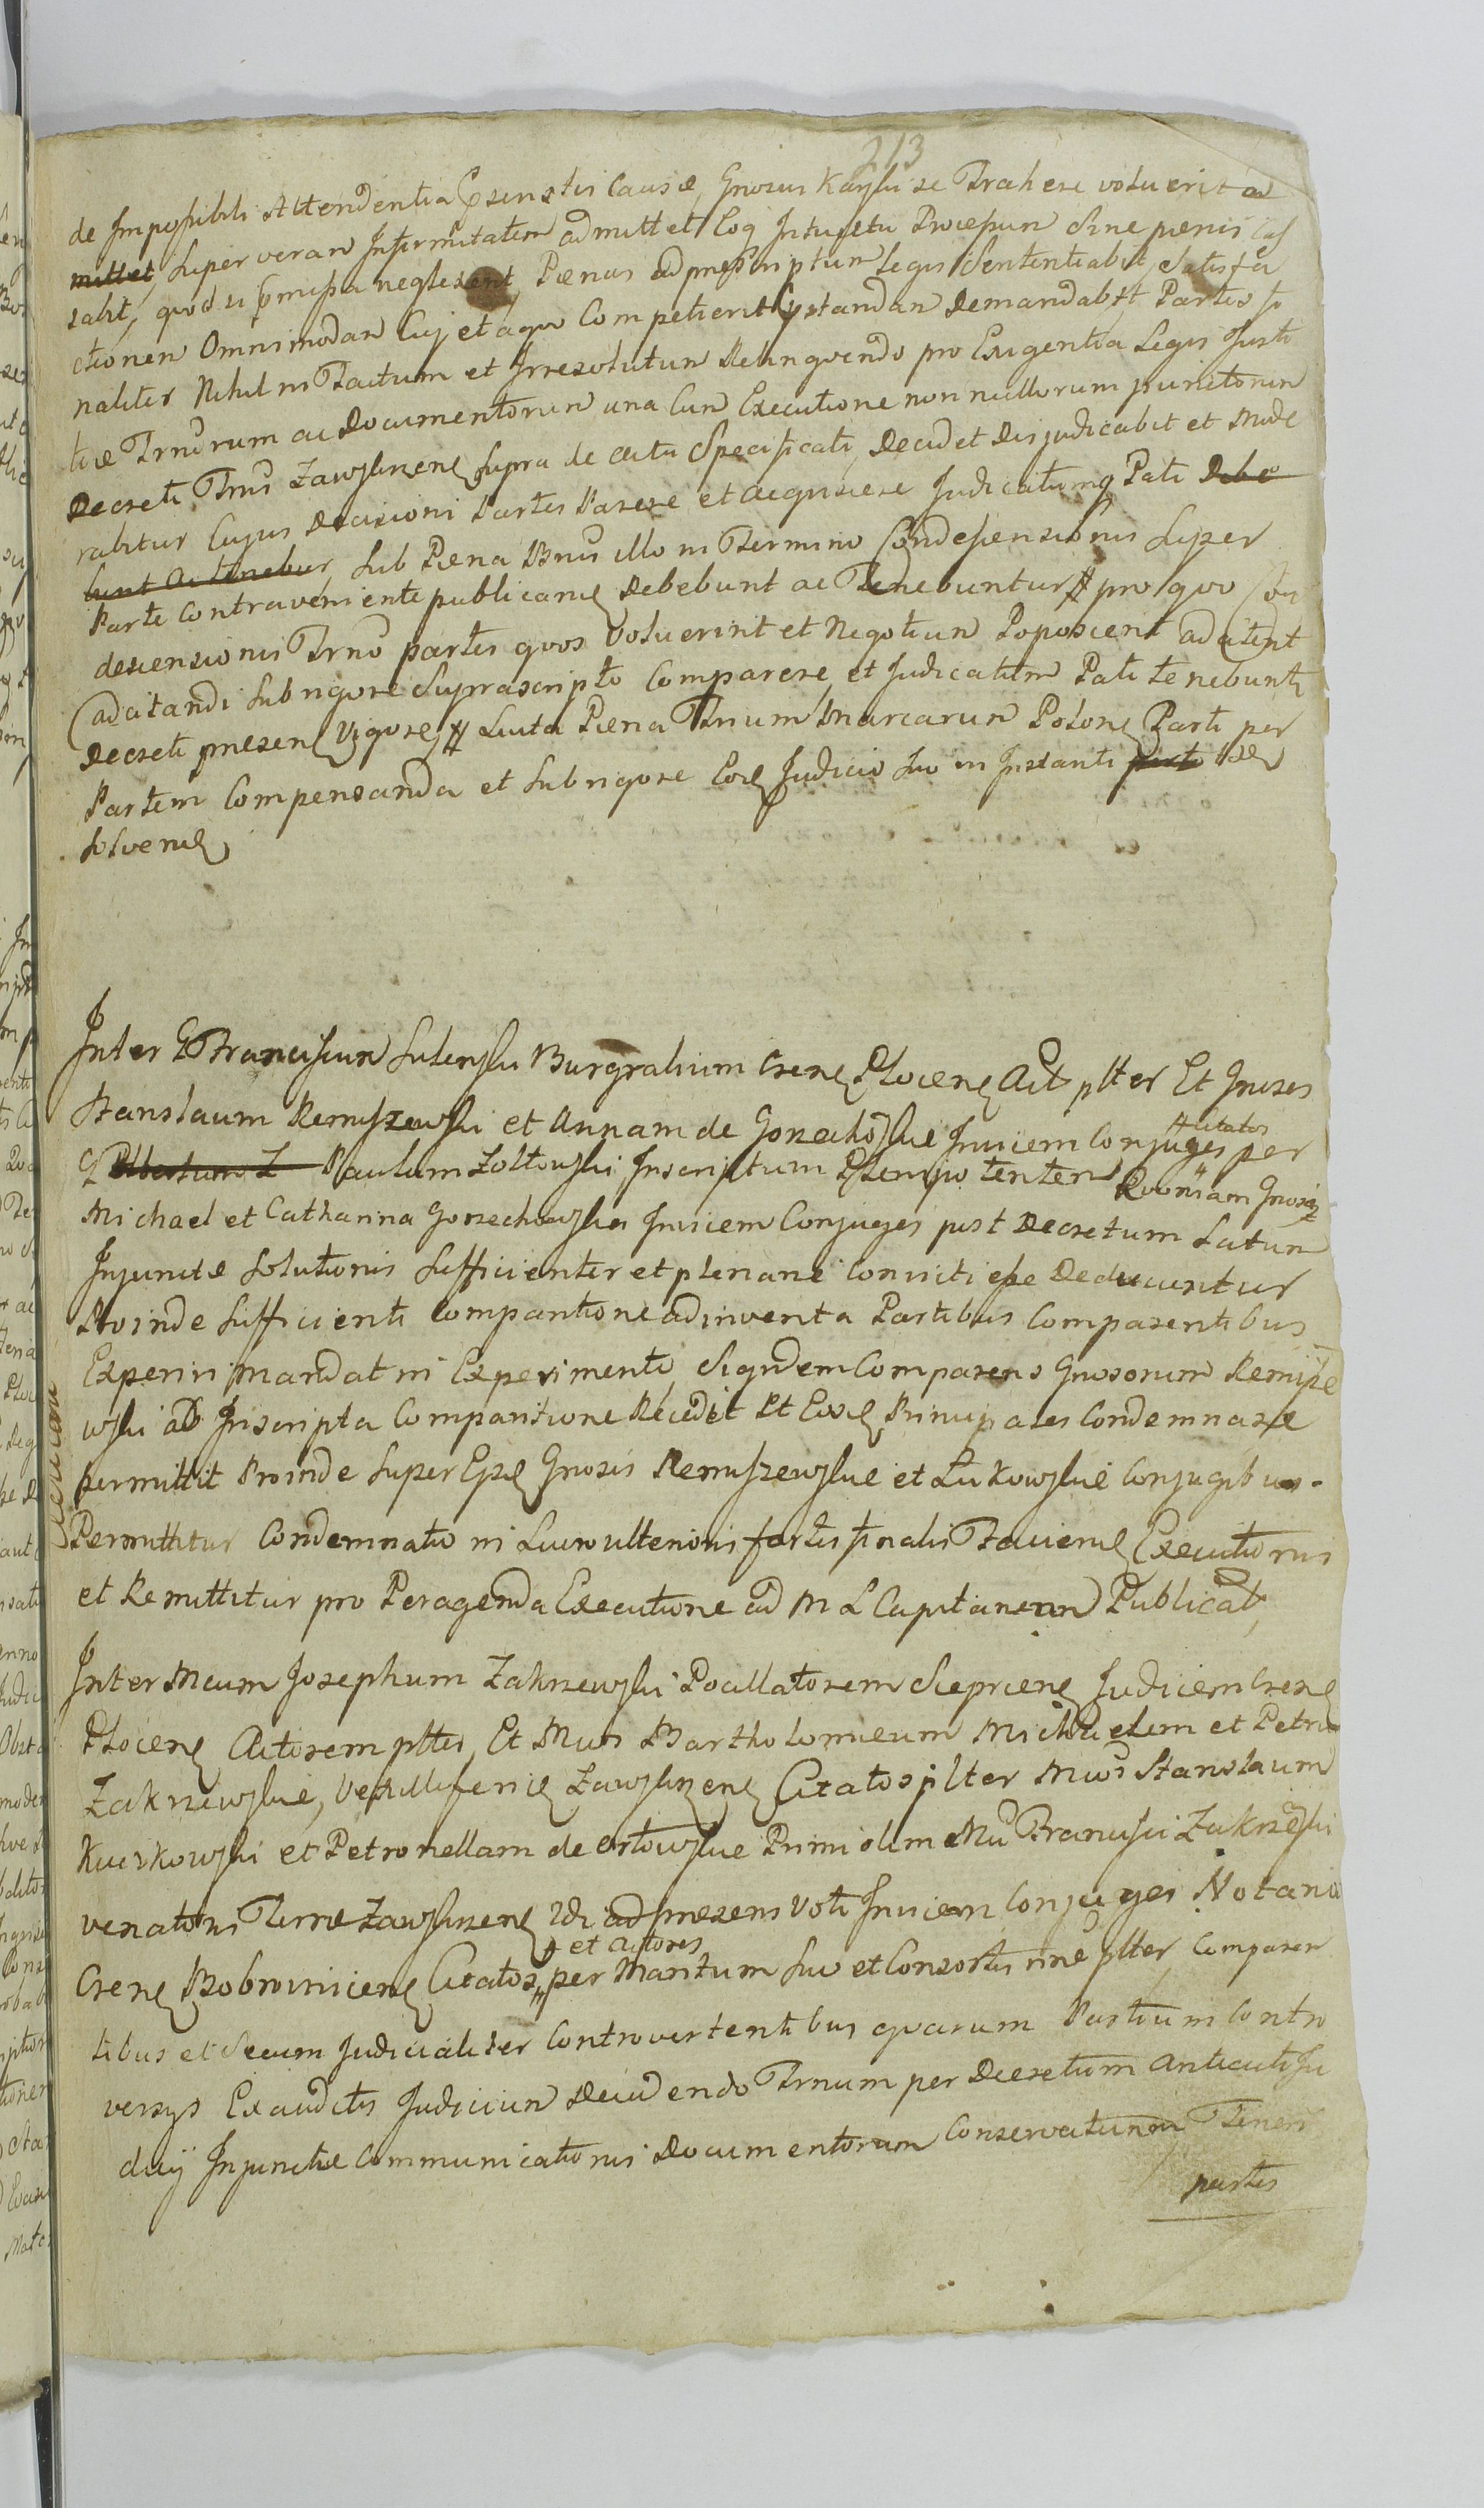 213
de Impossibili Attendentia Essenstis Causæ, Gnosus Kayski se Trahere voluerit ad
mittet, super veram Infirmitatem admittet Eoq Intuitu Processum sine pænis Cas
sabit, quod si præmissa neglexerit, Pænas ad præscriptum Legis Sententiabit, Satisfa
ctionem Omnimodam Cuj et a quo Competierit præstandam Demandabit, Partes fi
naliter Nihil in Factum et Irresolutum Relinquendo pro Exigentia Legis Justi
tiæ Trnorum ac Documentorum una Cum Executione non nullorum punctorum
Decreti Trris Zawskrzenę supra de actu Specificati, Decidet Disjudicabit et Mode
rabitur Cujus Decisioni Partes Parere et acquiere Judicatumq Pati Debe
bunt ac tenebur, sub Pæna Bnis illo in Termino Condescensionis super
Parte Contraveniente publicanę Debebunt ac Tenebuntur # pro quo Con
descensionis Trno partes quos Voluerint et Negotium Poposcerit adcitent
adcitandi sub rigore suprascripto Comparere, et Judicatum Pati tenebunt
Decreti præsenę Vigore, # Luita Pæna Trium Marcarum Polonę Parti per
Partem Compensanda et sub rigore Eorę Judicio suo in Instanti parto de
solvenę,
Inter G Franciscum Sulensķi Burgrabium Crenę Plocenę Act plter Et Gnosos
Stanislaum Remiszewski et Annam de Gorzechowskie Invicem Conjuges per
# Citatos
G Albertum Z Paulum Zołtowski, Inscriptum Plenipotentem Quoniam Gnosi
Michael et Catharina Gorzechowskie Invicem Conjuges post Decretum Latum
Injunctæ Solutionis sufficienter et plenarie convicti esse Deducuntur
Proinde sufficienti Comparitione adinventa Partibus Comparentibus
Experiri mandat in Experimento, Siquidem Comparens Gnosorum Remisze
wski ab Inscripta Comparitione Recedit Et Eosdę Principales Condemnare
permittit Proinde super Ejsdę Gnosis Remiszewskie et Lukowskie Conjugibus.
Permittitur Condemnatio in Lucro ulterioris fortis finalis Facienę Executionis
et Remittitur pro Peragenda Executione ad M L Capitaneum Publicat,
Inter Mcum Josephum Zakrzewski Pocillatorem Sieprcenę Judicem Crenę
Plocenę Actorem plter, Et Mcos Bartholomæum Michaelem et Petrum
Zakrzewskie, Vexilliferię Zawskrzenę Citatos plter Mcos Stanislaum
Kuczkowski et Petronellam de Orłowskie Primi olim Mci Francisci Zakrzewski
venatoris Terræ Zawskrzenę 2di ad præsens Voti Invicem Conjuges Notario
Crenę Bobrownicenę Citatos # per Maritum suo et Consortis nne plter, Comparen
# et Actores
tibus et secum Judicialiter Controvertentibus quarum Partium Contro
versys Exauditis Judicium Decidendo Trnum per Decretum anticuti Ju
dicij Injunctæ Communicationis Documentorum Conservatum Teneri
partes